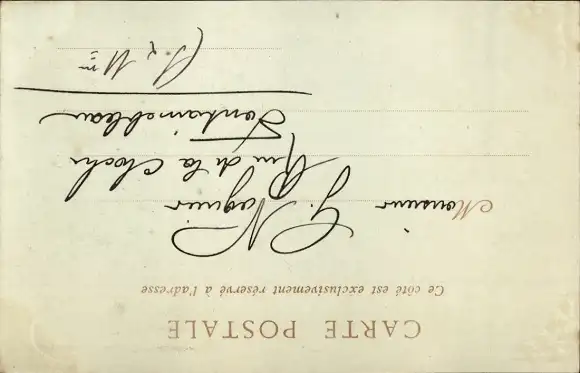 CARTE POSTALE
Ce côté est exclusivement réservé à l'adresse
Monsieur
G. Naquier
Rue de la Cloche
Fontainebleau
(S. & M.)